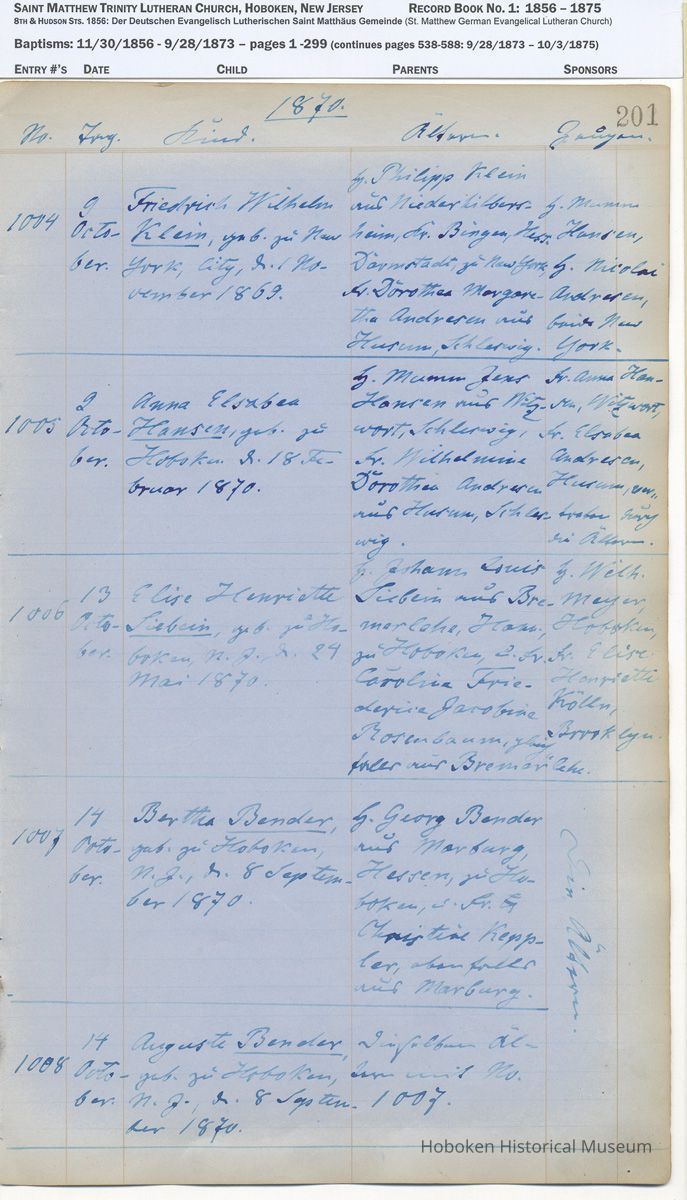 SAINT MATTHEW TRINITY LUTHERAN CHURCH, HOBOKEN, NEW JERSEY RECORD BOOK NO. 1: 1856 – 1875
8TH & HUDSON STS. 1856: Der Deutschen Evangelisch Lutherischen Saint Matthäus Gemeinde (St. Matthew German Evangelical Lutheran Church)
Baptisms: 11/30/1856 - 9/28/1873 – pages 1 -299 (continues pages 538-588: 9/28/1873 – 10/3/1875)
ENTRY #'S DATE CHILD PARENTS SPONSORS
1870. 201
No. Tag. Kind. Ältern. Zeugen.
1004
9
Octo-
ber.
Friedrich Wilhelm
Klein, geb. zu New
York, City, d. 1 No-
vember 1869.
H. Philipp Klein
aus Niederhilbers-
heim, Kr. Bingen, Hess.
Darmstadt, zu New York
Fr. Dorothea Margare-
tha Andresen aus
Husum, Schleswig.
H. Mumm
Hansen,
H. Nicolai
Andresen,
beide New
York.
1005
9
Octo-
ber.
Anna Elsabea
Hansen, geb. zu
Hoboken d. 18 Fe-
bruar 1870.
H. Mumm Jens
Hansen aus Witz-
wort, Schleswig
Fr. Wilhelmine
Dorothea Andresen
aus Husum, Schles-
wig.
Fr. Anna Han-
sen, Witzwort,
Fr. Elsabea
Andresen,
Husum, ver-
treten durch
die Ältern.
1006
13
Octo-
ber.
Elise Henriette
Siebein, geb. zu Ho-
boken, N. J., d. 24
Mai 1870.
H. Johann Louis
Siebein aus Bre-
merlehe, Hann,
zu Hoboken, u. Fr.
Carolina Frie-
dericie Jacobine
Rosenbaum, gleich
falls aus Bremerlehe.
H. Wilh.
Meyer,
Hoboken,
Fr. Elise
Henriette
Kölln,
Brooklyn.
1007
14
Octo-
ber.
Bertha Bender,
geb. zu Hoboken,
N. J., d. 8 Septem-
ber 1870.
H. Georg Bender
aus Marburg,
Hessen, zu Ho-
boken, u. Fr.
Christine Kepp-
ler, ebenfalls
aus Marburg.
Die Ältern.
1008
14
Octo-
ber.
Auguste Bender,
geb. zu Hoboken,
N. J., d. 8 Septem-
ber 1870.
Dieselben Äl-
tern wie No.
1007.
Hoboken Historical Museum